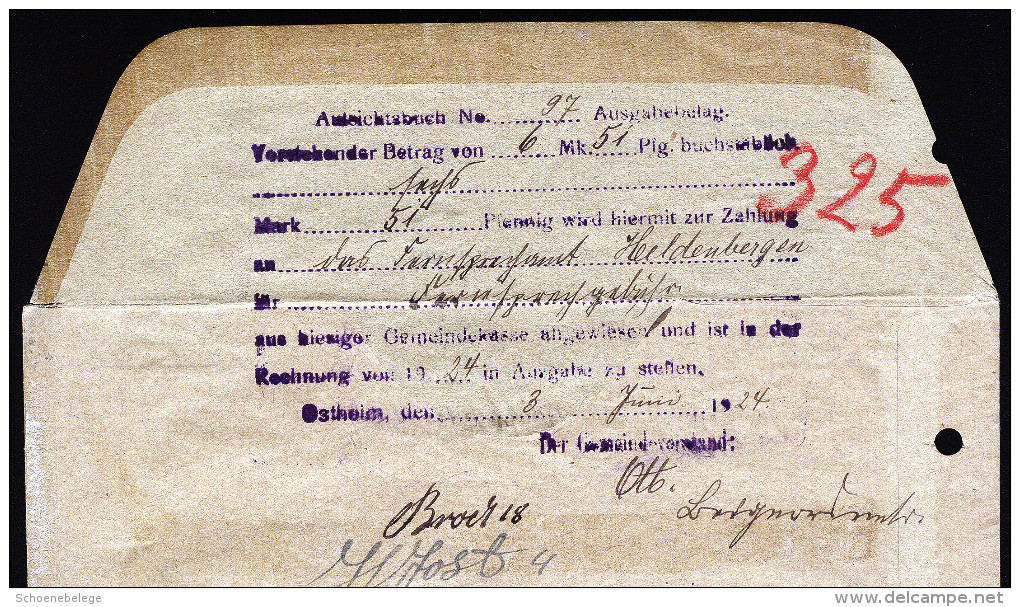 Aufsichtsbuch No. 97 Ausgabebelag.
Vorstehender Betrag von 6 Mk. 51 Pfg. buchstäblich
325
sechs
Mark 51 Pfennig wird hiermit zur Zahlung
an das Fernsprechamt Heldenbergen
für Fernsprechgebühr
aus hiesiger Gemeindekasse angewiesen und ist in der
Rechnung von 1924 in Ausgabe zu stellen.
Ostheim, den 3 Juni 1924.
Der Gemeindevorstand:
Ott.
Schoenebelege
delcampe.net